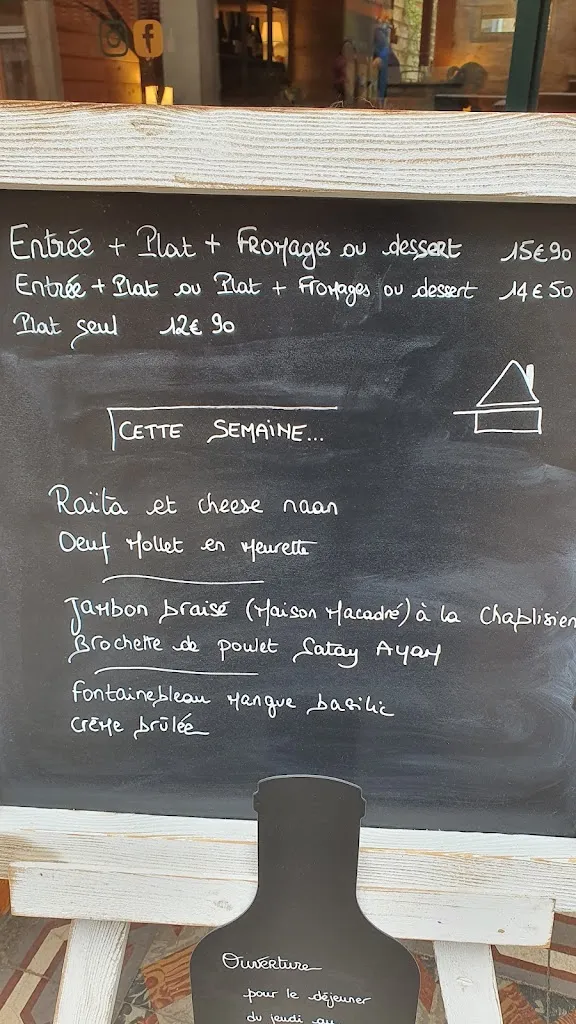 Entrée + Plat + Fromages ou dessert 15€90
Entrée + Plat ou Plat + Fromages ou dessert 14€50
Plat seul 12€90
CETTE SEMAINE...
Raïta et cheese naan
Oeuf Mollet en Meurette
Jambon braisé (Maison Macadré) à la Chablisien
Brochette de poulet Satay Ayam
Fontainebleau Mangue basilic
Crème brûlée
Ouverture
pour le déjeuner
du jeudi au